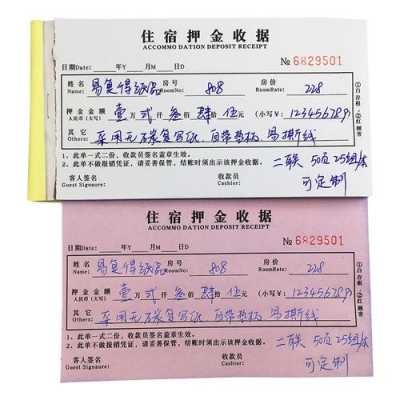 住宿押金收据
ACCOMMO DATION DEPOSIT RECEIPT
日期Date: 年Y 月M 日D № 6829501
姓名 Name 易复得纸品 房号 808 房价 RoomRate: 228
押金金额 人民币(大写) 壹万弍仟叁佰肆拾伍元 (小写¥: 123456789)
其它 Others 采用无碳复写纸,自带垫板 易撕线
1、此单一式二份,收款员签名盖章生效。
2、此单不做报销凭证,请妥善保管,结账时须出示该押金收据。
客人签名 收款员 二联 50页 25组/本
Guest Signaure: Cashier: 可定制
①白存根 ②红顾客
住宿押金收据
ACCOMMO DATION DEPOSIT RECEIPT
日期Date: 年Y 月M 日D № 6829501
姓名 Name 易复得纸品 房号 808 房价 RoomRate: 228
押金金额 人民币(大写) 壹万弍仟叁佰肆拾伍元 (小写¥: 123456789)
其它 Others 采用无碳复写纸,自带垫板 易撕线
1、此单一式二份,收款员签名盖章生效。
2、此单不做报销凭证,请妥善保管,结账时须出示该押金收据。
客人签名 收款员 二联 50页 25组/本
Guest Signaure: Cashier: 可定制
①白存根 ②红顾客